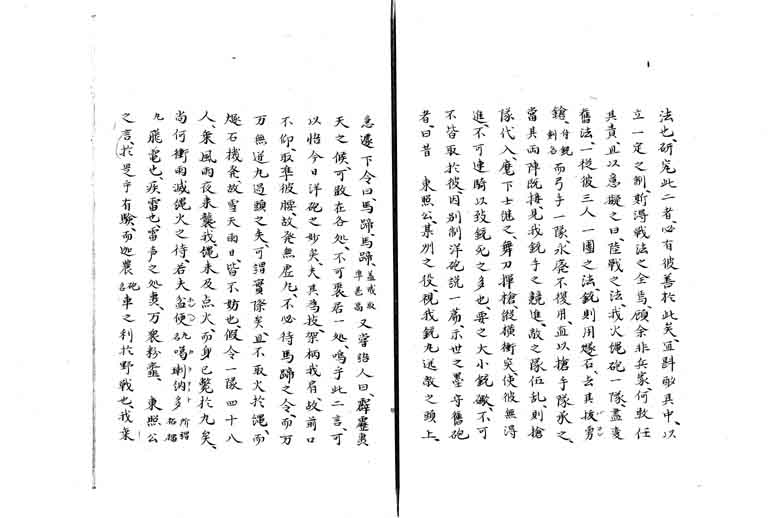 法也、研究此二者、必有彼善於此矣、宜斟酌其中、以
立一定之制、斯得戦法之全焉、顧余非兵家、何敢任
其責、且以意擬之曰、陸戦之法、我火縄砲一隊、盡変
舊法、一従彼三人一團之法、銃則用燧石、去其接
鎗、而弓手一隊、永廃不復用、直以搶手隊承之、
當其両陣既接、見我銃手之競進、敵之隊伍乱、則搶
隊代入、麾下士継之、舞刀揮搶、縦横衝突、使彼無得
進、不可連騎以致銃死之多也、要之大小銃礮、不可
不皆取於彼、因別制洋砲説一篇、示世之墨守舊砲
者、曰昔 東照公、某州之役、視我銃丸過敵之頭上、
急遽下令曰、馬蹄、馬蹄、又嘗語人曰、霹靂
天之候、可散在各処、不可聚居一処、嗚乎此二言、可
以悟今日洋砲之妙矣、夫其為技、架柄我肩、故前口
不仰、取準彼腰、故発無虚丸、不必待馬蹄之令、而万
万無逆丸過頭之失、可謂實際矣、且不取火於縄、而
燧石機条、故雪天雨日、皆不妨也、假令一隊四十八
人、乗風雨夜来襲、我縄未及点火、而身已斃於丸矣、
尚何衝雨滅縄火之待、若夫盆便矶喝喇炳多 所謂
丸飛電也、疾雷也、雷声之処、万衆粉齏、東照公
之言、於是乎有験、而迦農 砲名 車之利於野戦也、我業